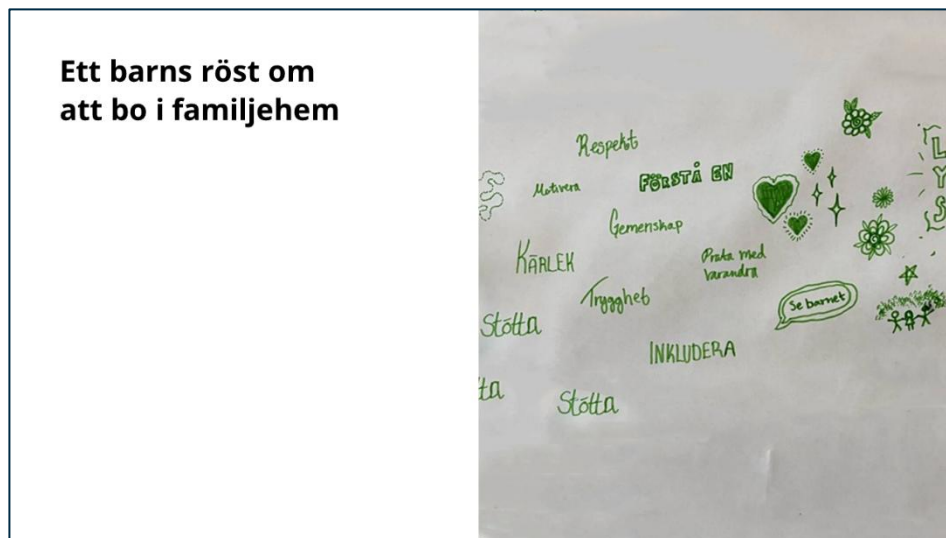 Ett barns röst om
att bo i familjehem
Respekt
Motivera
FÖRSTÅ EN
Gemenskap
KÄRLEK
Prata med
varandra
Trygghet
Se barnet
Stötta
INKLUDERA
Stötta
LYS